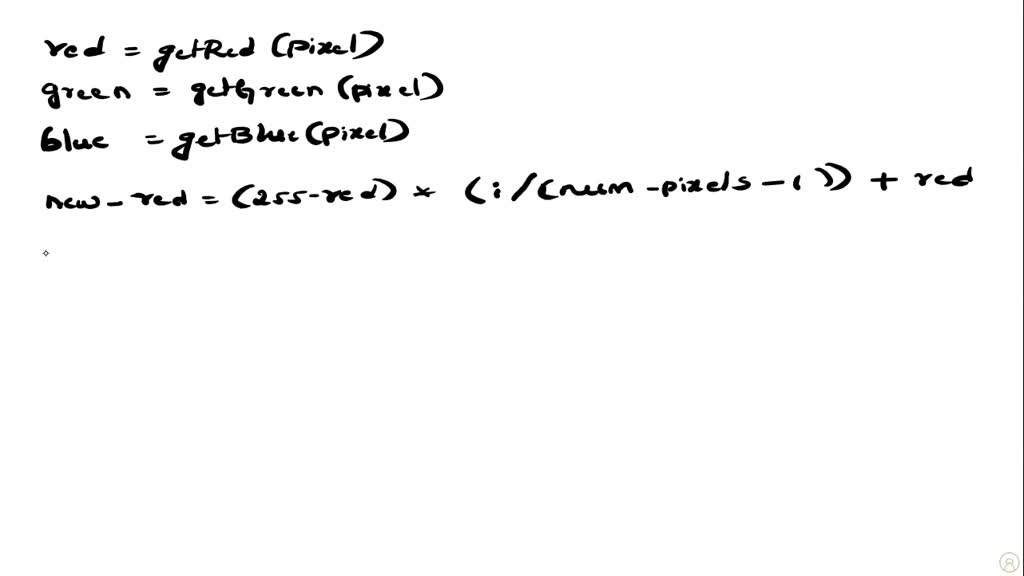 red = getRed (pixel)
green = getGreen (pixel)
blue = getBlue (pixel)
new_red = (255-red) * (i/(num-pixels-1)) + red